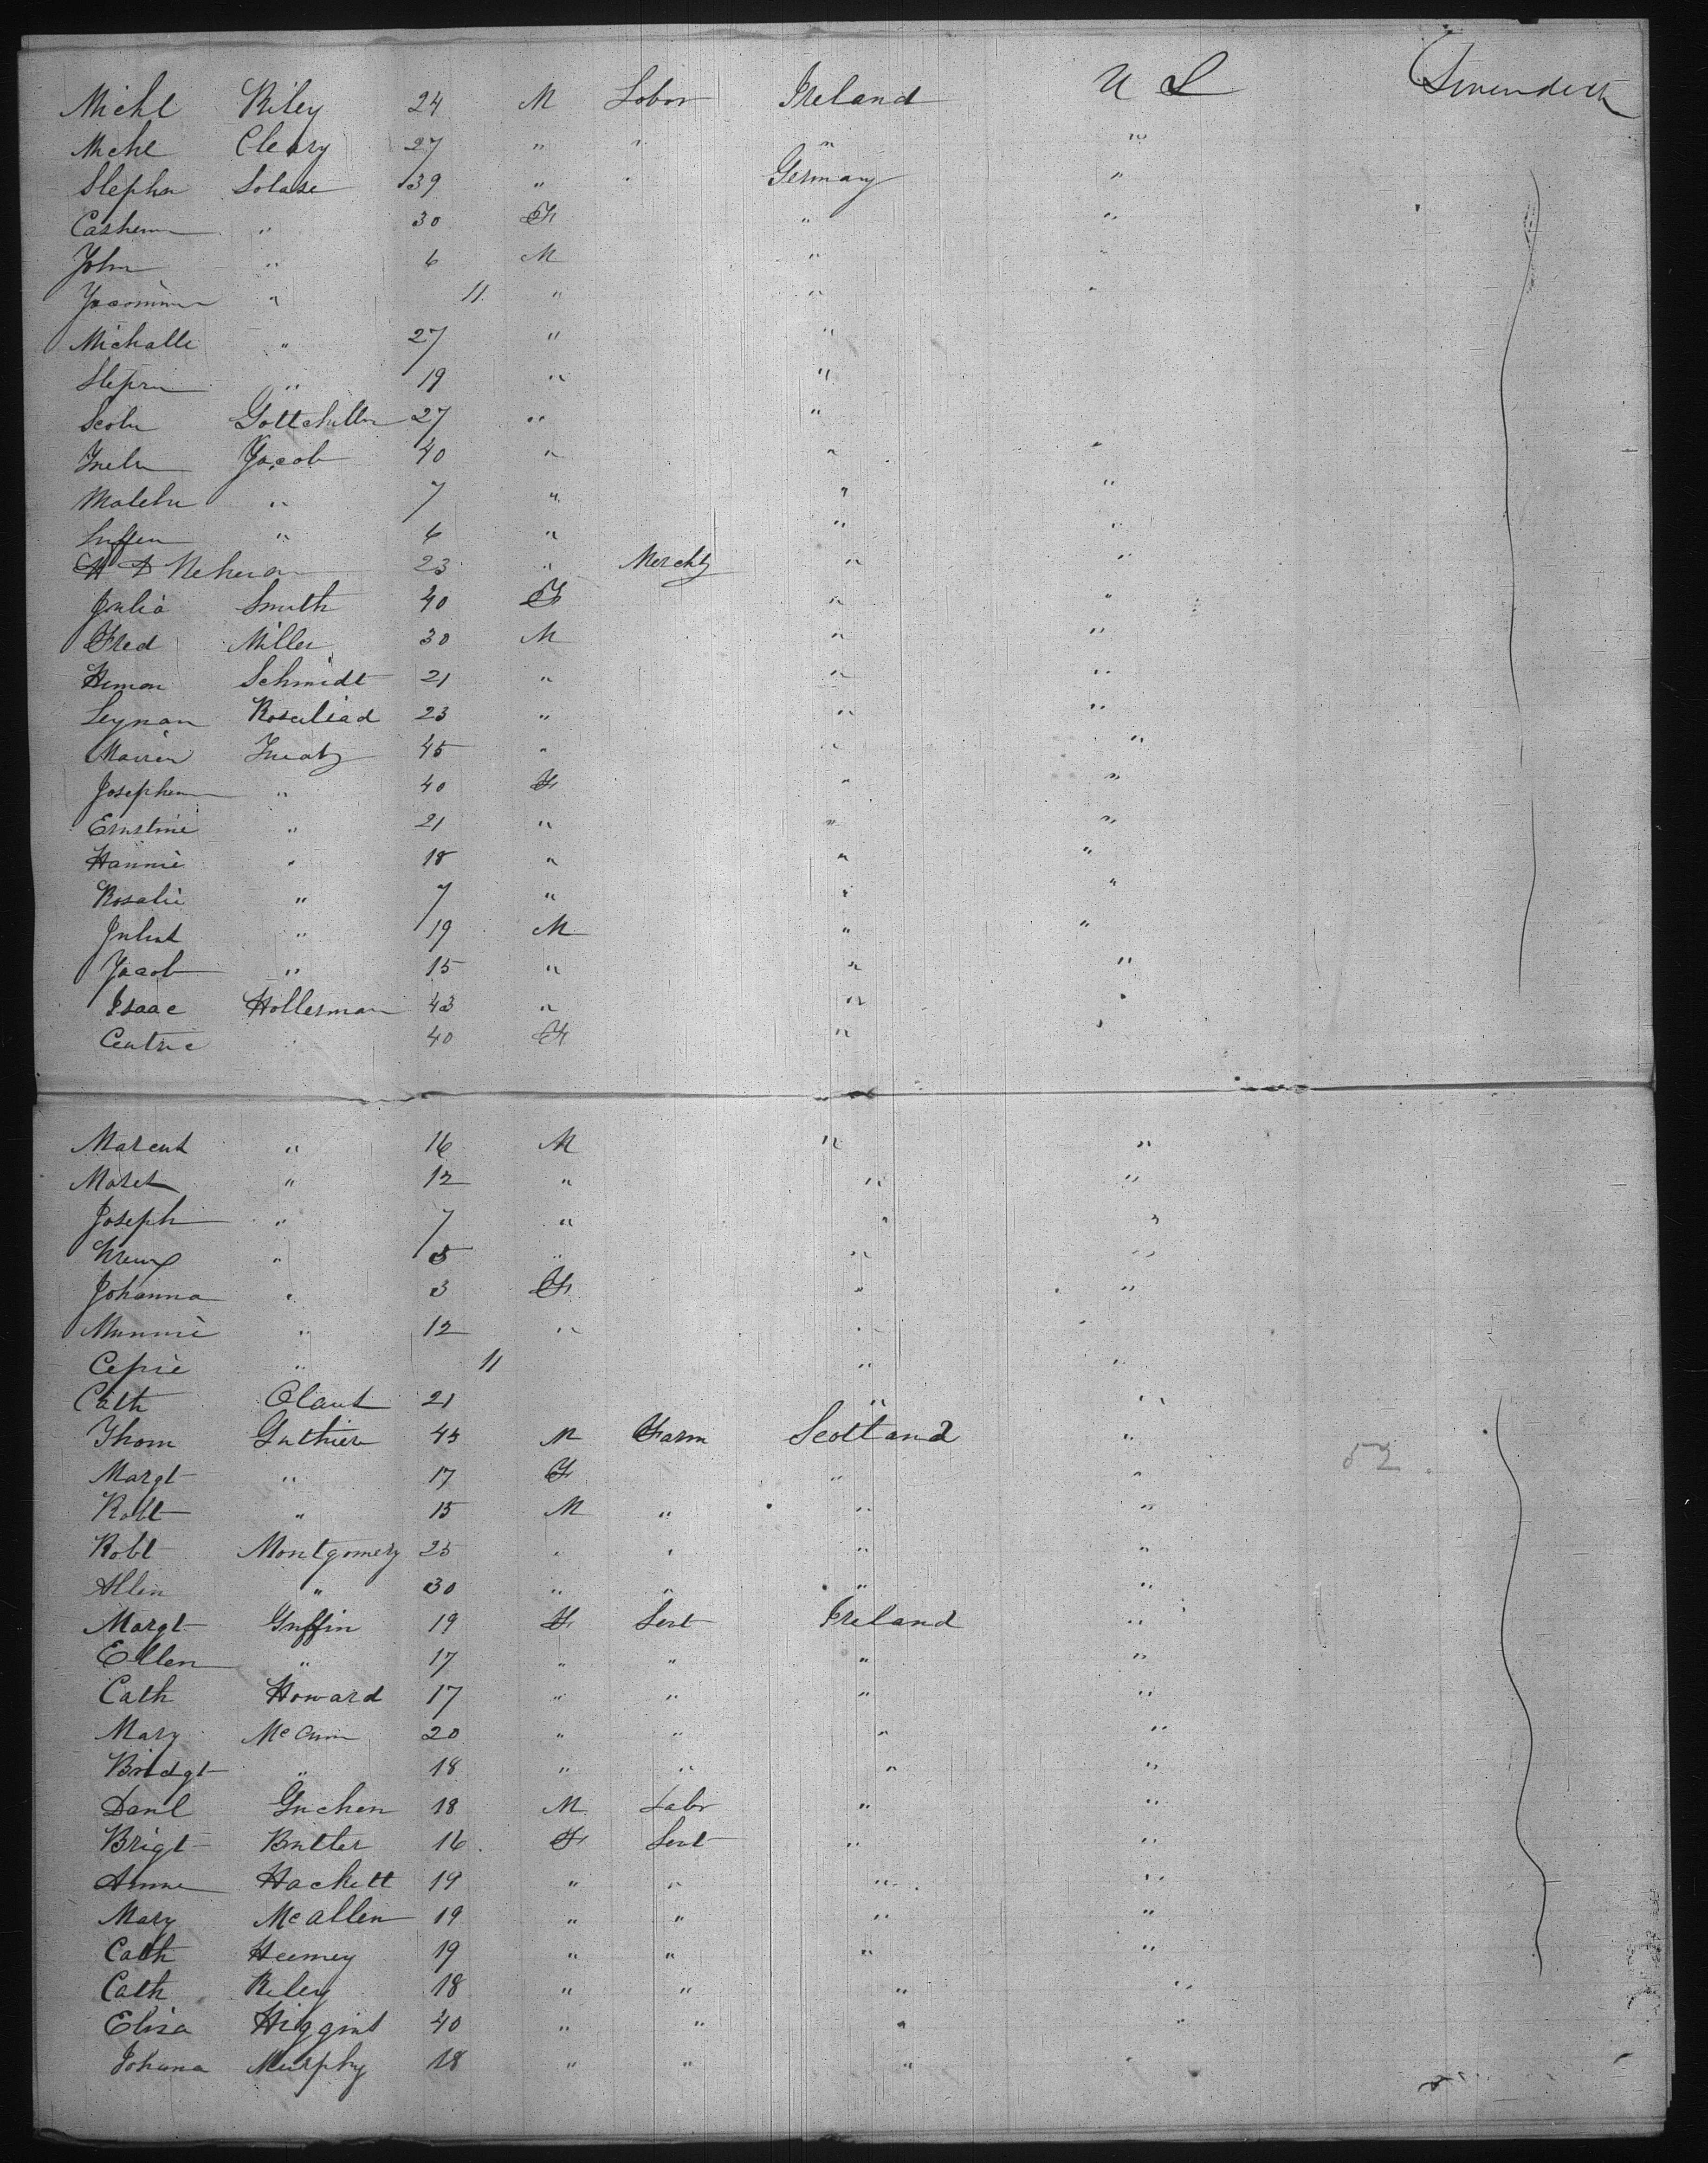 Michl Riley 24 M Labor Ireland U S
Michl Cleary 27 " " " "
Stephn Solase 39 " " Germany "
Cashem " 30 F " "
John " 6 M " "
" 11 " " "
Michalle " 27 " "
Stepn " 19 " "
Gottchiller 27 " "
Jacob 40 " " "
" 7 " " "
" 6 " " "
23 " Mercht " "
Julia Smith 40 F " "
Fred Miller 30 M " "
Heman Schmidt 21 " " "
Leyman 23 " " "
45 " " "
Josephem " 40 F " "
Ernstine " 21 " " "
Hannie " 18 " " "
Rosalie " 7 " " "
Julius " 19 M " "
Jacob " 15 " " "
Isaac Hollerman 43 " " "
Centrie " 40 F " "
Marcus " 16 M " "
Moses " 12 " " "
Joseph " 7 " " "
" 5 " " "
Johanna " 3 F " "
Minnie " 12 " " "
Cepie " 11 " "
Cath Olaus 21 " "
Thom Guthier 45 M Farm Scotland "
Margt " 17 F " "
Robt " 15 M " " "
Robt Montgomery 25 " " " "
Allen " 30 " " " "
Margt Griffin 19 F Servt Ireland "
Ellen " 17 " " " "
Cath Howard 17 " " " "
Mary McCann 20 " " " "
Bridgt " 18 " " " "
Danl Guchen 18 M Labr " "
Brigt Butler 16 F Servt " "
Anne Hackett 19 " " " "
Mary McAllen 19 " " " "
Cath Heemey 19 " " " "
Cath Riley 18 " " " "
Eliza Higgins 40 " " " "
Johana Murphy 18 " " " "
52